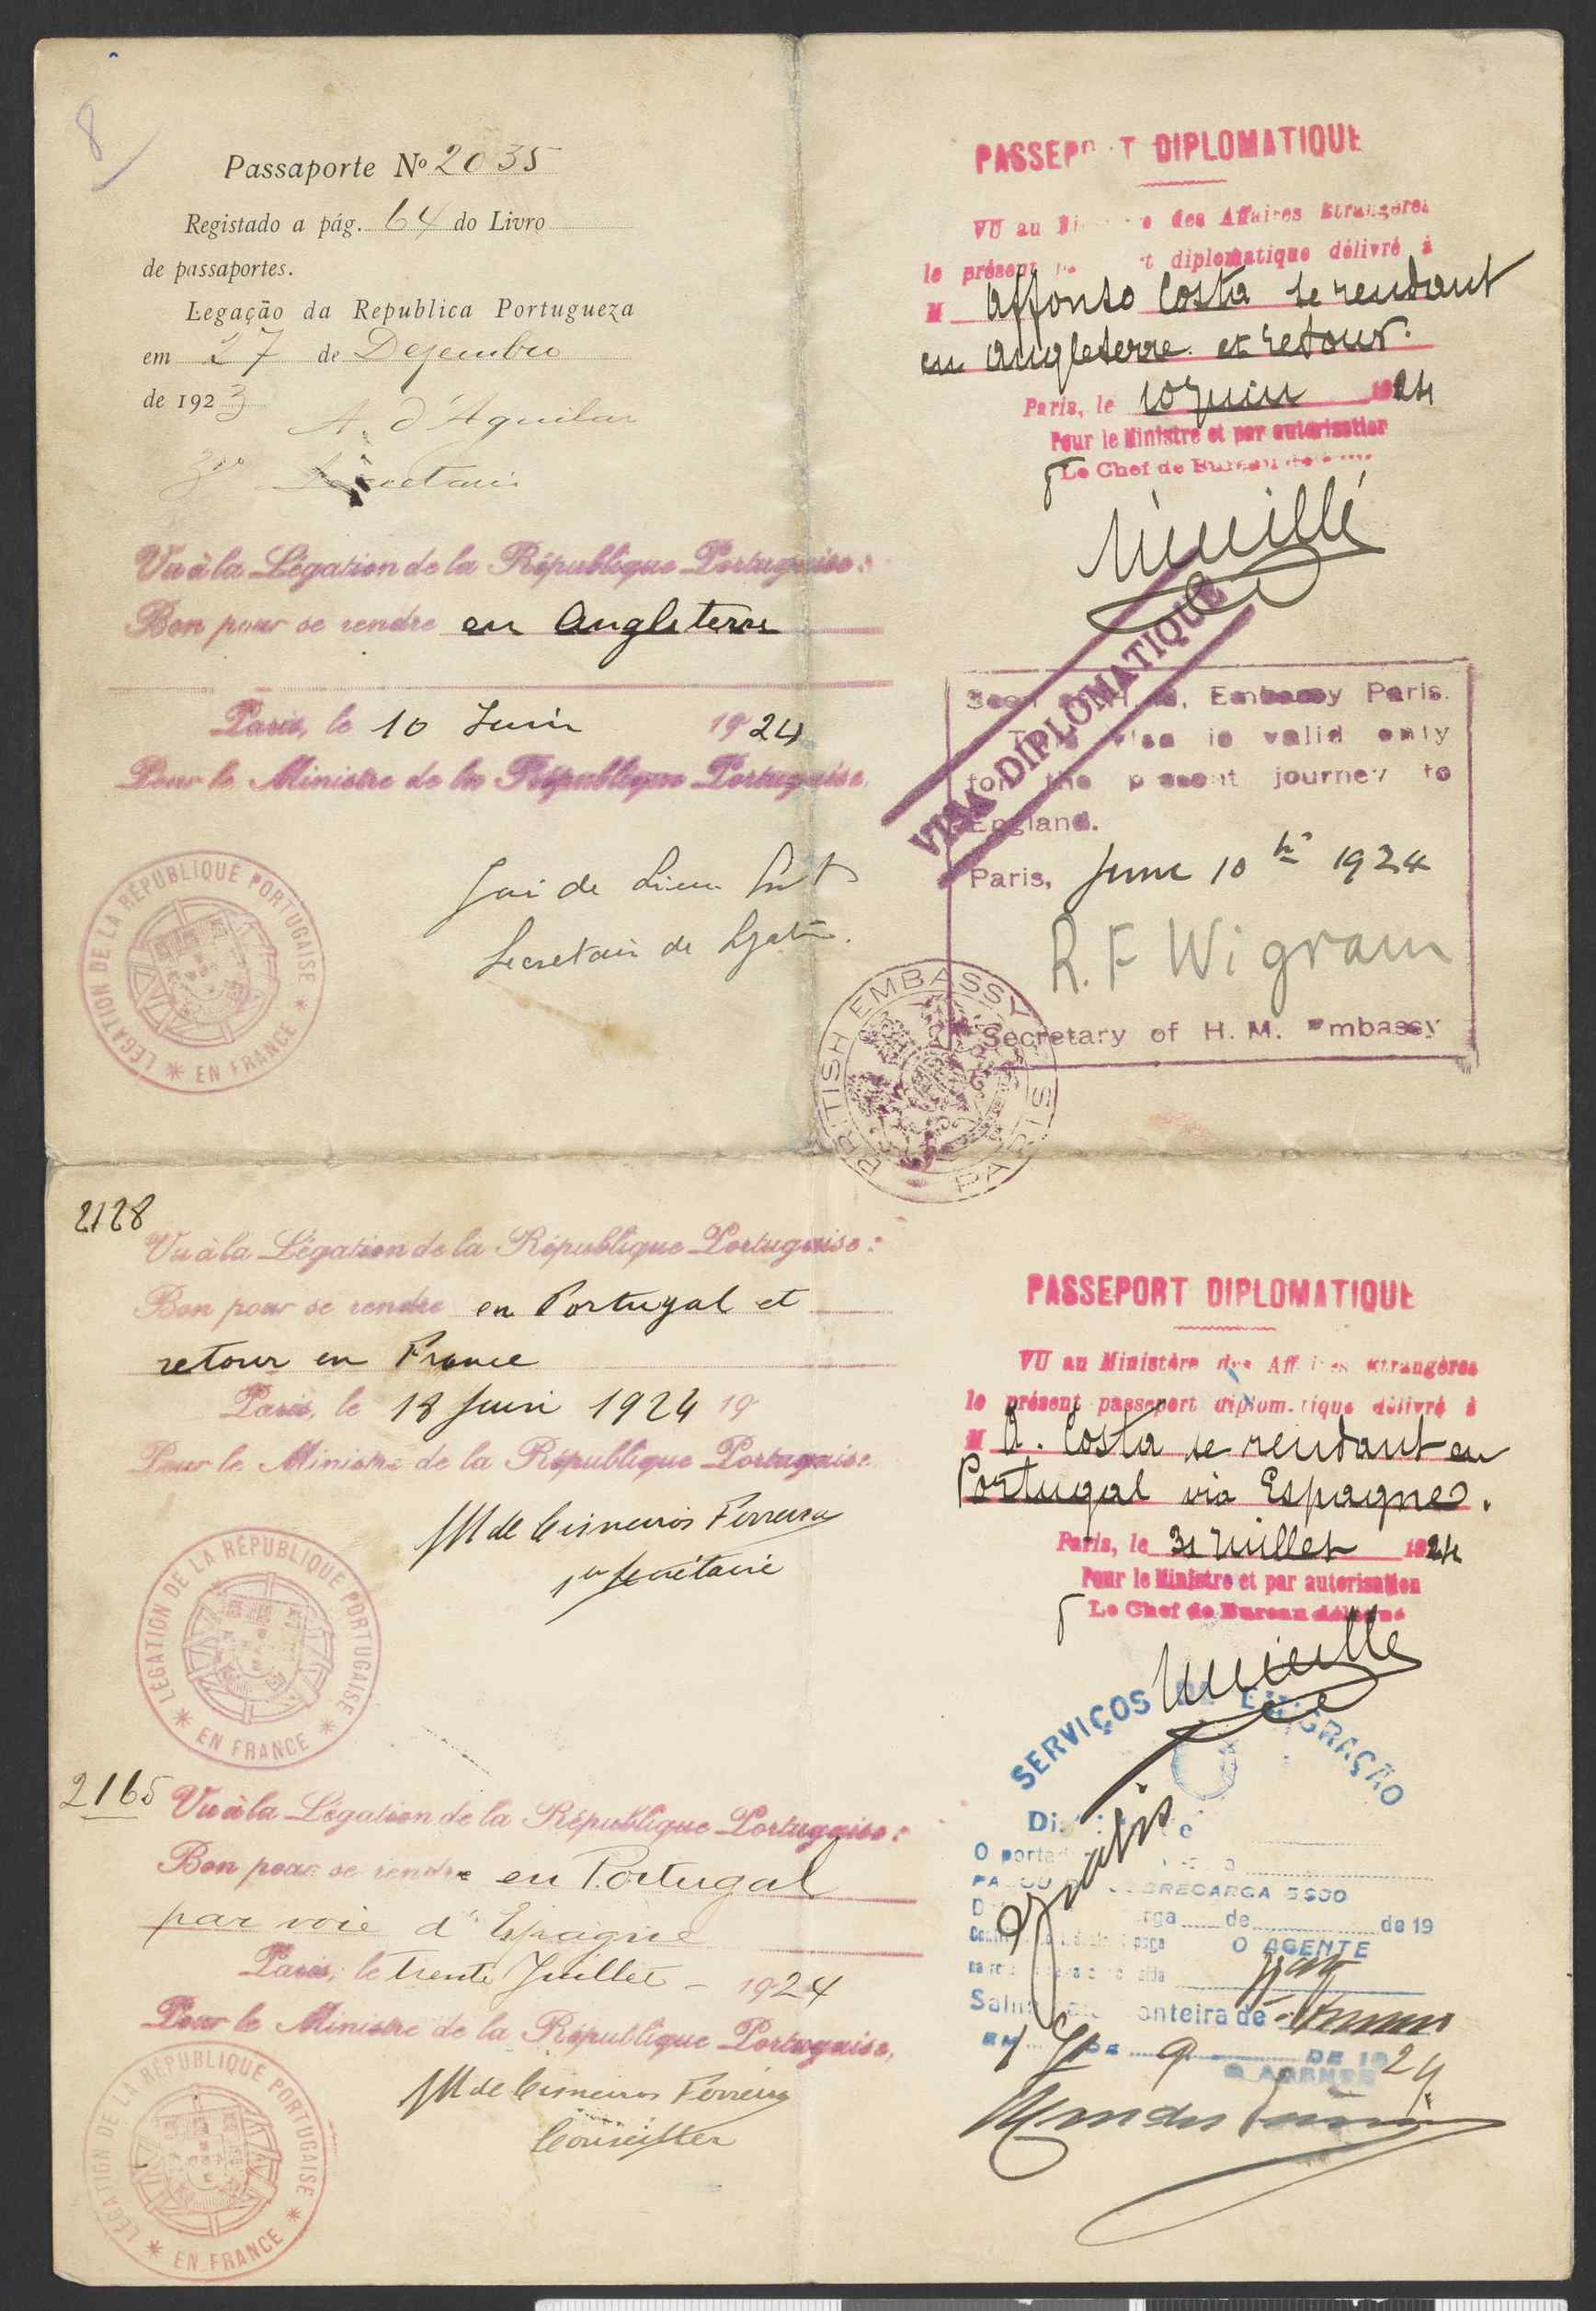 8
Passaporte Nº 2035
Registado a pág. 64 do Livro
de passaportes.
Legação da Republica Portugueza
em 27 de Dezembro
de 1923
A. d'Aguilar
Vu à la Légation de la République Portugaise:
Bon pour se rendre en Angleterre
Paris, le 10 Juin 1924
Pour le Ministre de la République Portugaise,
Secretair de
LÉGATION DE LA RÉPUBLIQUE PORTUGAISE * EN FRANCE *
PASSEP T DIPLOMATIQUE
VU au des Affaires Etrangères
le présent t diplomatique délivré à
M Affonso Costa se rendant
en Angleterre et retour.
Paris, le 10 Juin 1924
Pour le Ministre et par autorisation
Le Chef de Bureau
VISA DIPLOMATIQUE
Seen H. Embassy Paris.
visa is valid only
for the present journey to
England.
Paris, June 10th 1924
R. F Wigram
Secretary of H. M. Embassy
BRITISH EMBASSY PARIS
2128
Vu à la Légation de la République Portugaise:
Bon pour se rendre en Portugal et
retour en France
Paris, le 18 Juin 1924 19
Pour le Ministre de la République Portugaise
M de Cisneiros Ferreira
1er Secrétaire
LÉGATION DE LA RÉPUBLIQUE PORTUGAISE * EN FRANCE *
2165
Vu à la Légation de la République Portugaise:
Bon pour se rendre en Portugal
par voie d'Espagne
Paris, le trente Juillet - 1924
Pour le Ministre de la République Portugaise,
M de Cisneiros Ferreira
Conseiller
LÉGATION DE LA RÉPUBLIQUE PORTUGAISE * EN FRANCE *
PASSEPORT DIPLOMATIQUE
VU au Ministère des Affaires Etrangères
le présent passeport diplomatique délivré à
M A. Costa se rendant en
Portugal via Espagne.
Paris, le 31 Juillet 1924
Pour le Ministre et par autorisation
Le Chef de Bureau délégué
SERVIÇOS DE EMIGRAÇÃO
Gratis
O porta
SOBRECARGA 5$00
rga de de 19
O AGENTE
onteira de
9 DE 1924
O AGENTE